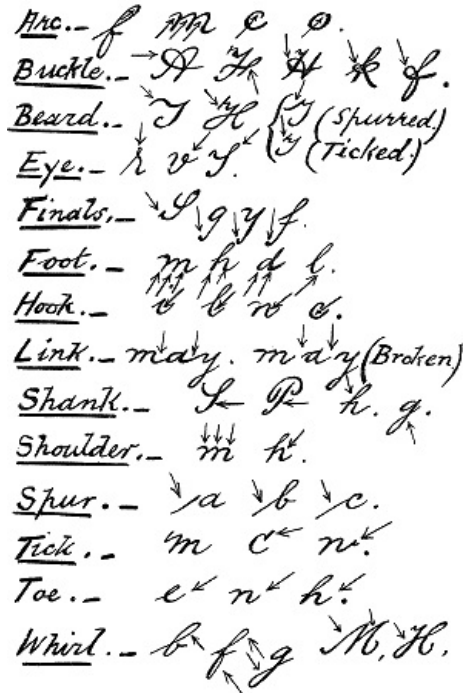 Arc.- f m c o.
Buckle.- A H H k f.
Beard.- T H { T (Spurred.)
{ T (Ticked.)
Eye.- r v S.
Finals.- S g y f.
Foot.- m h d l.
Hook.- v b w c.
Link.- may. may (Broken)
Shank.- S P h. g.
Shoulder.- m h.
Spur.- a b c.
Tick.- m C n.
Toe.- e n h.
Whirl.- b f g M, H,